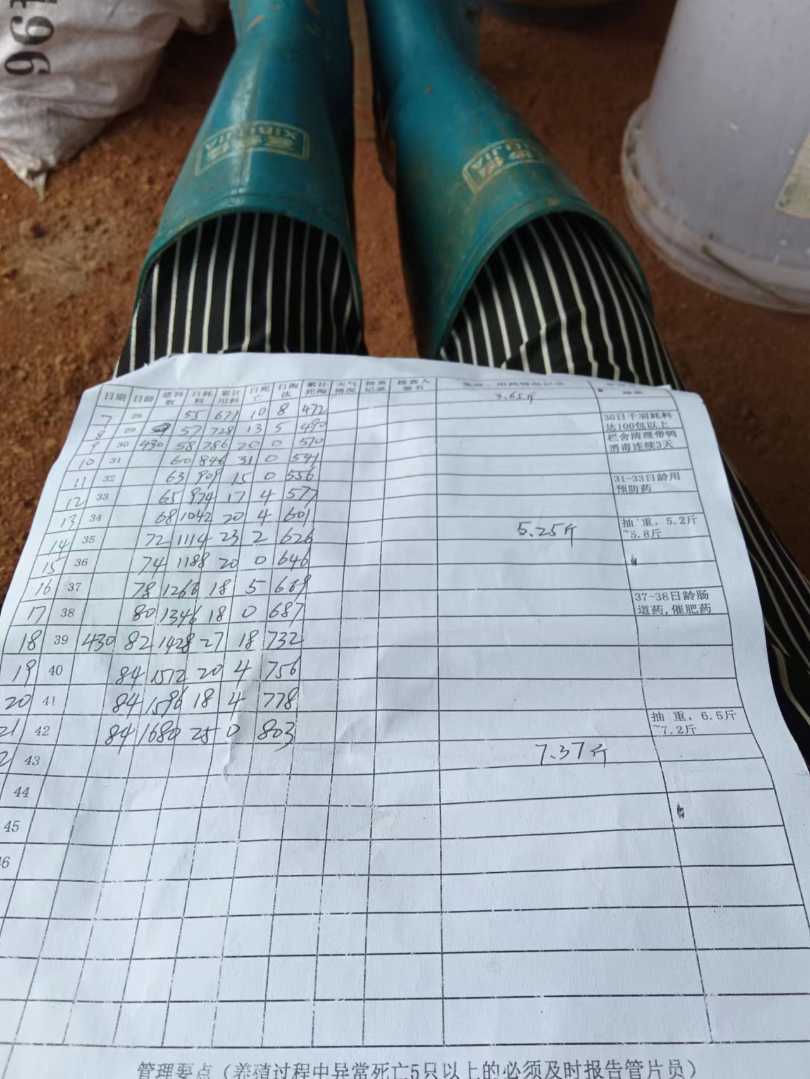 466
XINGJIA
日期 日龄 进料数 日耗料 累计用料 日死亡 日淘汰 累计死淘 天气情况 检查记录 检查人签名
7 28 55 671 10 8 472 3.65斤
8 29 57 728 13 5 490 30日千羽耗料达100包以上
9 30 430 58 786 20 0 510 栏舍清理带鸭消毒连续3天
10 31 60 846 31 0 541
11 32 63 909 15 0 556 31-33日龄用预防药
12 33 65 974 17 4 577
13 34 68 1042 20 4 601
14 35 72 1114 23 2 626 5.25斤 抽重, 5.2斤~5.8斤
15 36 74 1188 20 0 646
16 37 78 1266 18 5 669
17 38 80 1346 18 0 687 37-38日龄肠道药, 催肥药
18 39 430 82 1428 27 18 732
19 40 84 1512 20 4 756
20 41 84 1596 18 4 778
21 42 84 1680 25 0 803 抽重, 6.5斤~7.2斤
2 43 7.37斤
44
45
6
管理要点(养殖过程中异常死亡5只以上的必须及时报告管片员)